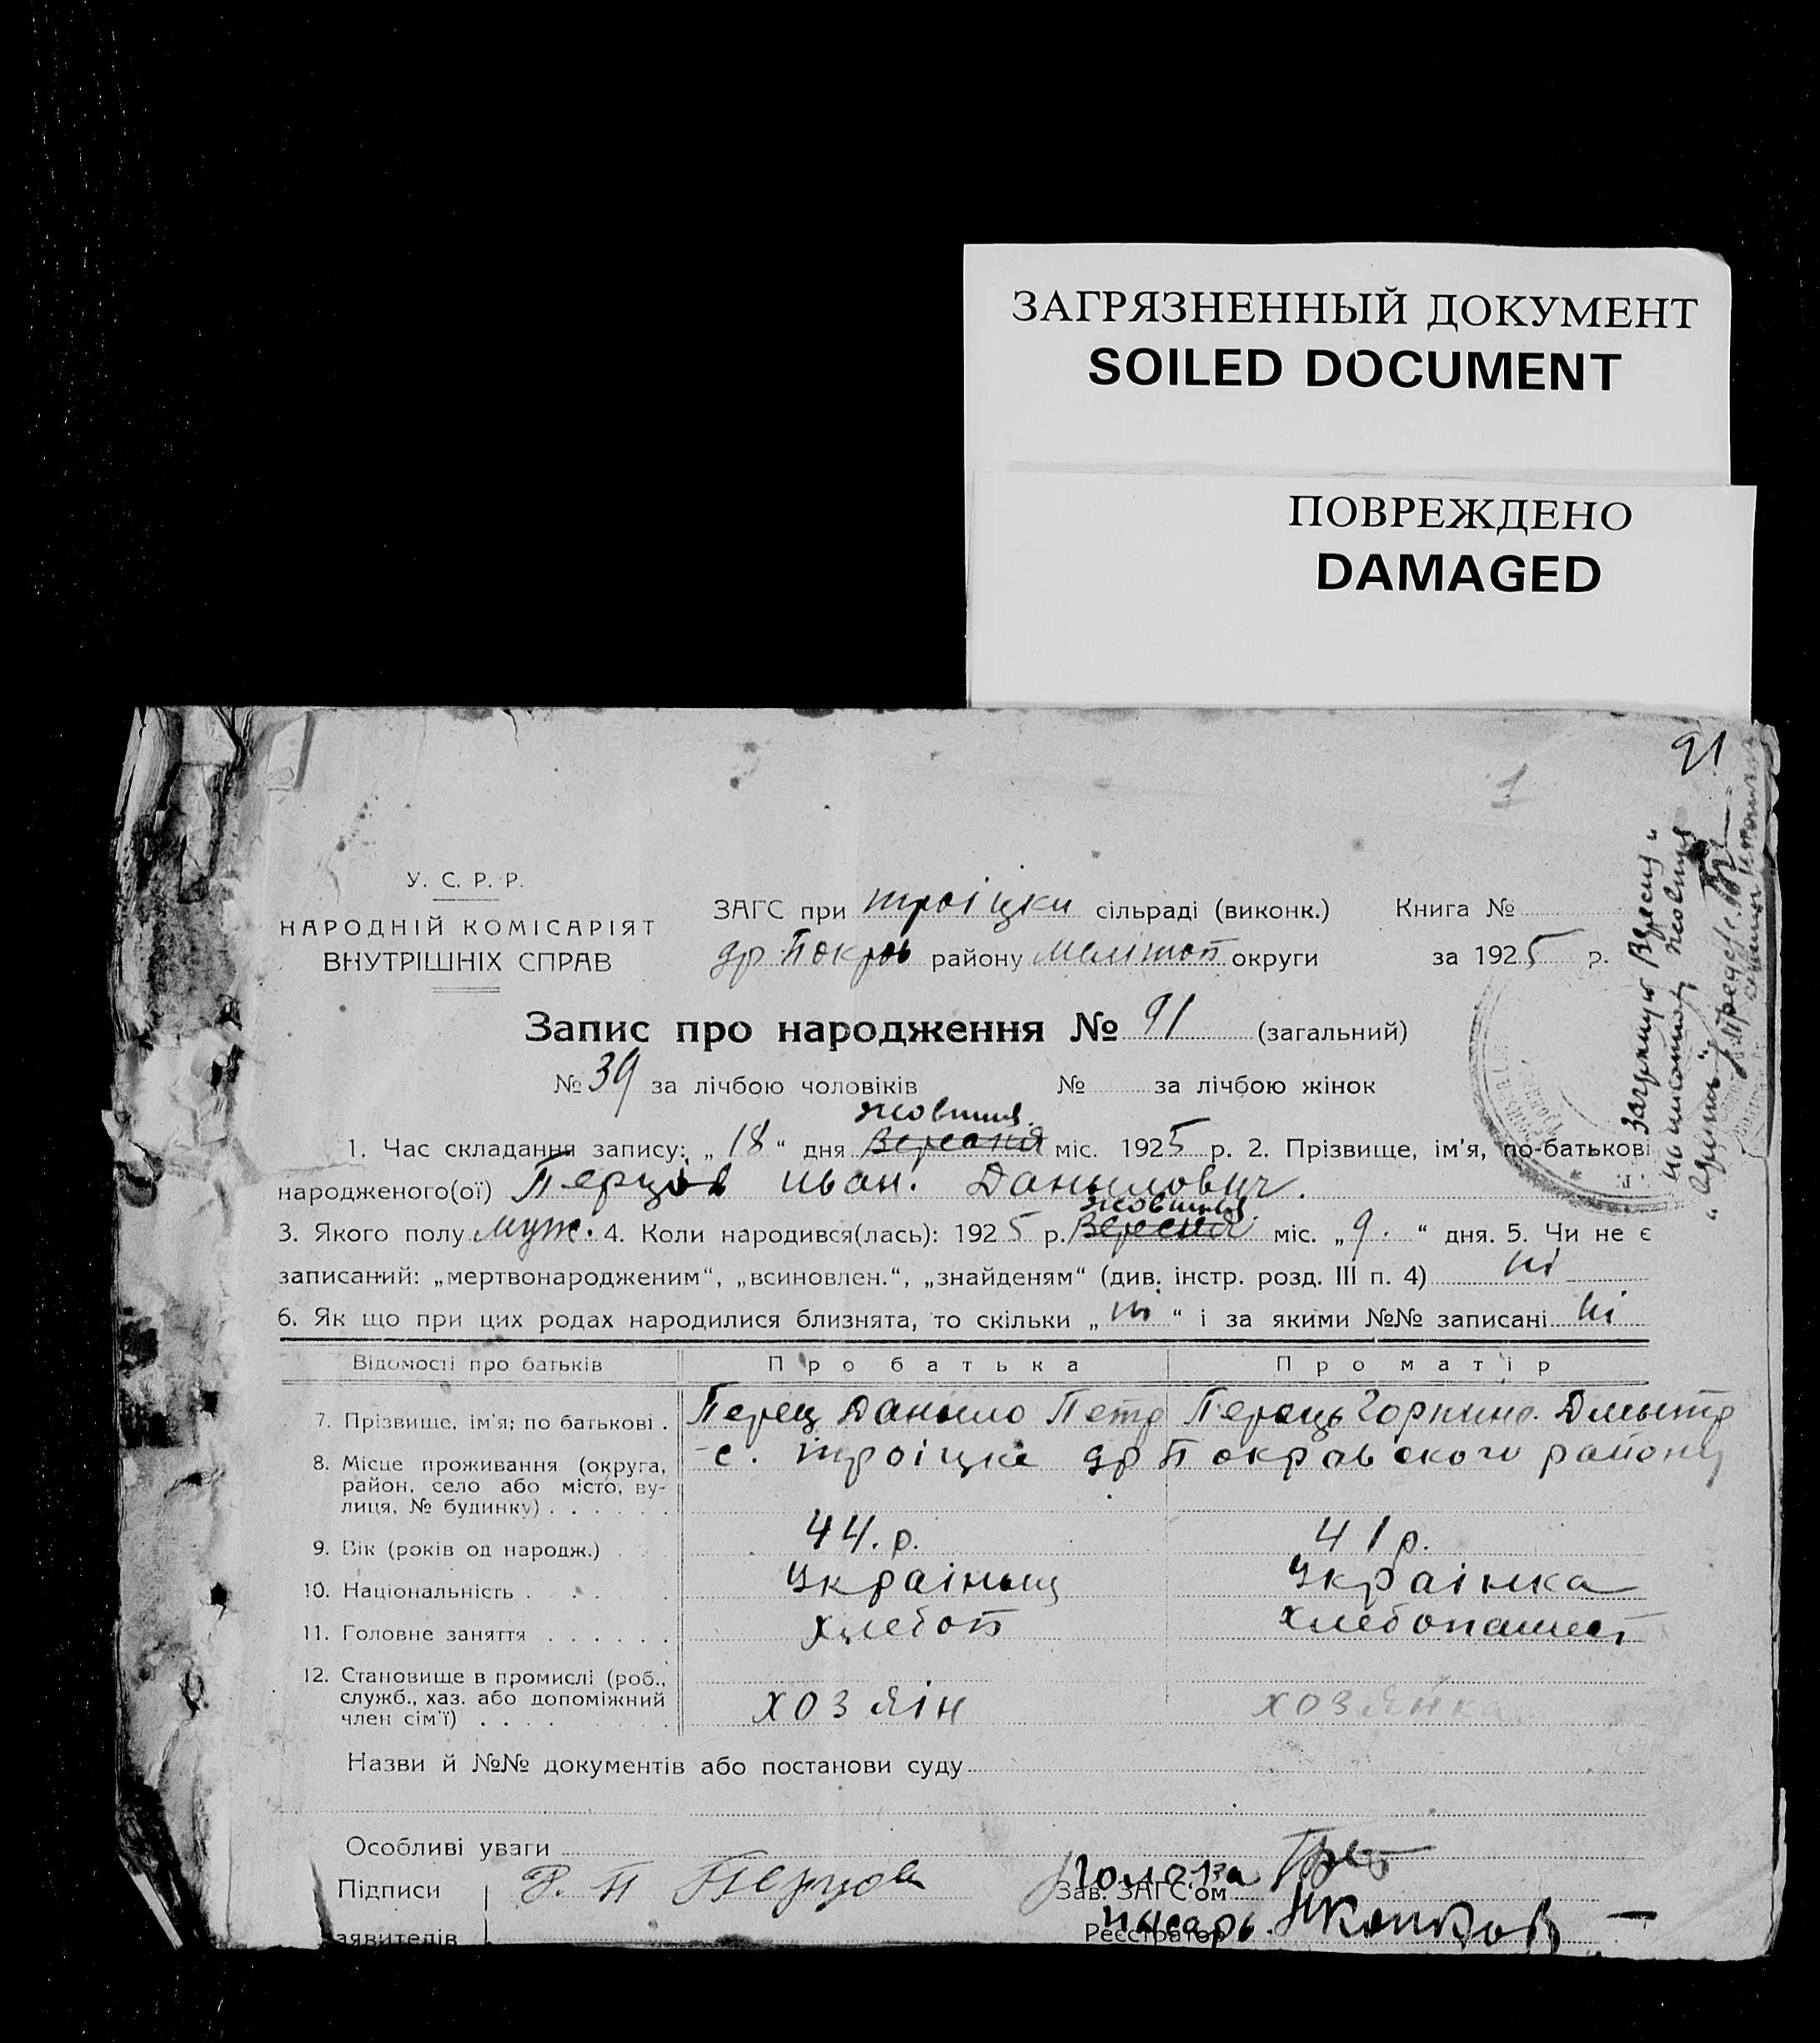 ЗАГРЯЗНЕННЫЙ ДОКУМЕНТ
SOILED DOCUMENT
ПОВРЕЖДЕНО
DAMAGED
91
1
У. С. Р. Р.
НАРОДНІЙ КОМІСАРІЯТ
ВНУТРІШНІХ СПРАВ
ЗАГС при троіцки сільраді (виконк.) Книга №
др Покров району меліноп округи за 1925 р.
Запис про народження № 91 (загальний)
№ 39 за лічбою чоловіків № за лічбою жінок
жовтня
1. Час складання запису: „18“ дня Вересня міс. 1925 р. 2. Прізвище, ім'я, по-батькові
народженого(ої) Перцов иван. Данылович.
жовтня
3. Якого полу муж. 4. Коли народився(лась): 1925 р. Вересня міс. „9.“ дня. 5. Чи не є
записаний: „мертвонародженим“, „всиновлен.“, „знайденям“ (див. інстр. розд. III п. 4) ні
6. Як що при цих родах народилися близнята, то скільки „ні“ і за якими №№ записані ні
Відомості про батьків Про батька Про матір
7. Прізвище, ім'я; по батькові . Перец Даныло Петр Перець Горпина. Дмытр
8. Місце проживання (округа, район, село або місто, вулиця, № будинку) . . . . . . с. троіцке др Покравского району
9. Вік (років од народж.) 44. р. 41 р.
10. Національність . . . . Украіныц Украінка
11. Головне заняття . . . . . . хлебоп хлебопашест
12. Становище в промислі (роб., служб., хаз. або допоміжний член сім'ї) . . . . хозяін хозяйка
Назви й №№ документів або постанови суду
Особливі уваги
Підписи Перцов Голова
Зав. ЗАГС'ом
заявителів писарь
Реєстратор